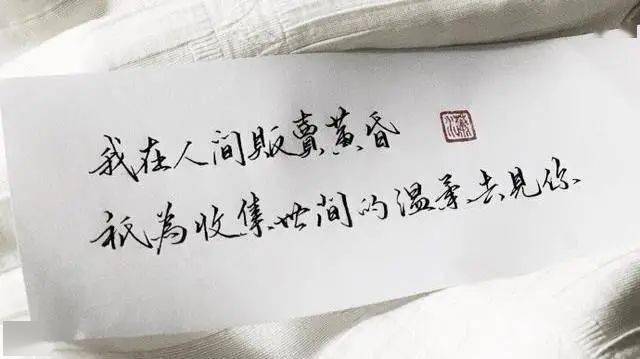 我在人间販賣黃昏
祇為收集世间的温柔去見你